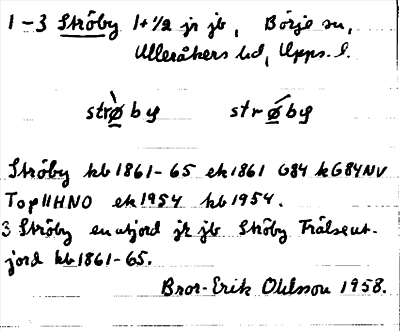 1-3 Ströby 1+1/2 jr jb, Börje sn,
Ulleråkers hd, Upps. l.
strø̀by strǿby
Ströby kb 1861-65 ek 1861 G84 kG84NV
Top11HNO ek 1954 kb 1954.
3 Ströby en utjord jr jb Ströby Trälseut-
jord kb 1861-65.
Bror-Erik Ohlsson 1958.